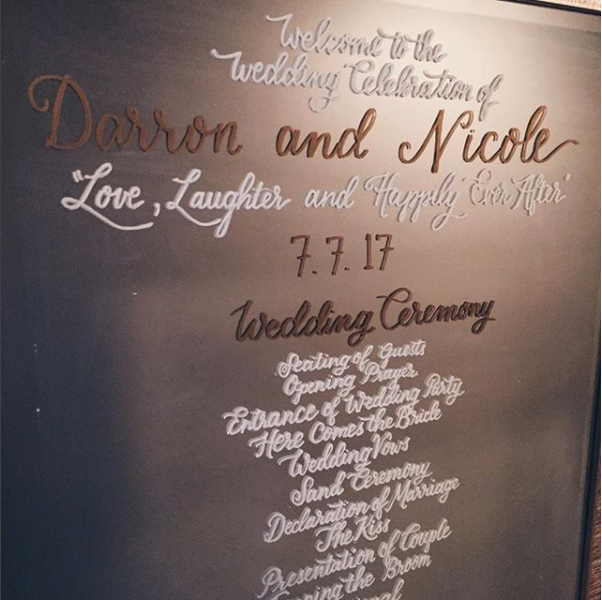 Welcome to the
Wedding Celebration of
Darron and Nicole
"Love, Laughter and Happily Ever After"
7.7.17
Wedding Ceremony
Seating of Guests
Opening Prayer
Entrance of Wedding Party
Here Comes the Bride
Wedding Vows
Sand Ceremony
Declaration of Marriage
The Kiss
Presentation of Couple
the Broom